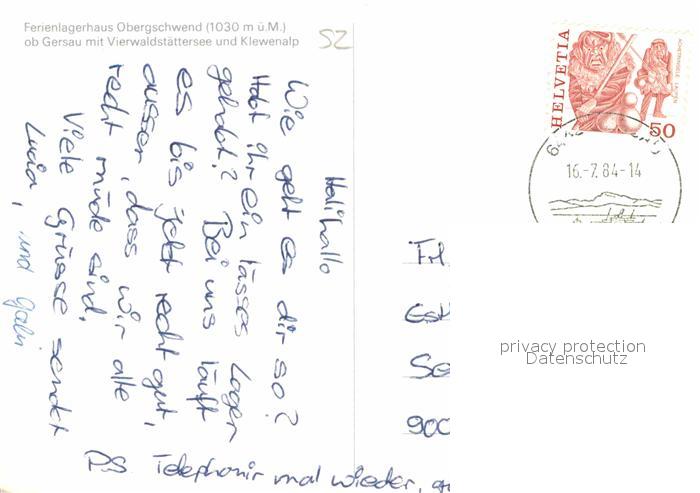 Ferienlagerhaus Obergschwend (1030 m ü.M.)
ob Gersau mit Vierwaldstättersee und Klewenalp
SZ
Halihallo
Wie geht es dir so?
Habt ihr ein lässes Lager
gehabt? Bei uns läuft
es bis jetzt recht gut,
ausser, dass wir alle
recht müde sind.
Viele Grüsse sendet
Lucia, und Gabi
P.S Telephonir mal wieder,
HELVETIA
ACHETRINGELE LAUPEN
50
16.-7.84-14
Frl
Est
Se
900
privacy protection
Datenschutz